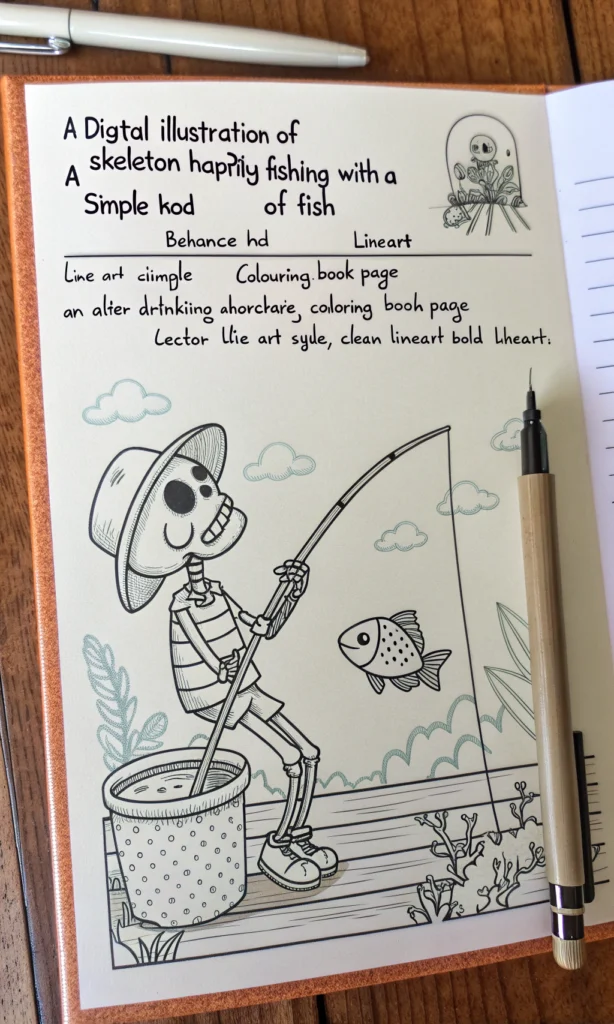 A Digtal illustration of
A skeleton happily fishing with a
Simple kod of fish
Behance hd Lineart
Line art ciimple Colouring.book page
an alter drtnkiing ahorctare, coloring booh page
Lector llie art syule, clean lineart bold Lheart: